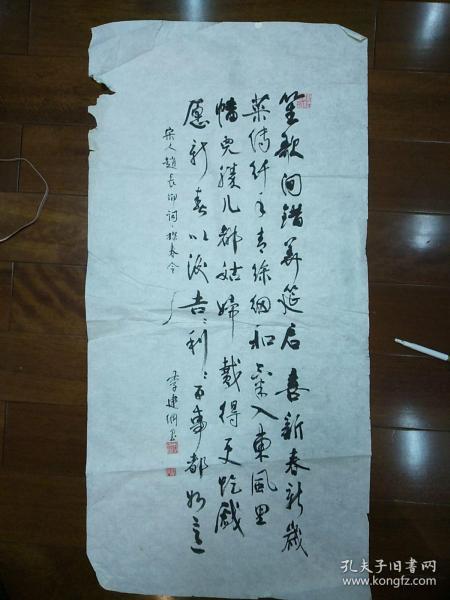 笙歌间错華筵启喜新春新岁
菜传纤手青絲细和气入東風里
幡兒胜儿都姑媂戴得更忔戲
愿新春以後吉:利:百事都如意
宋人趙長卿词·探春令
李建纲书
孔夫子旧书网
www.kongfz.com